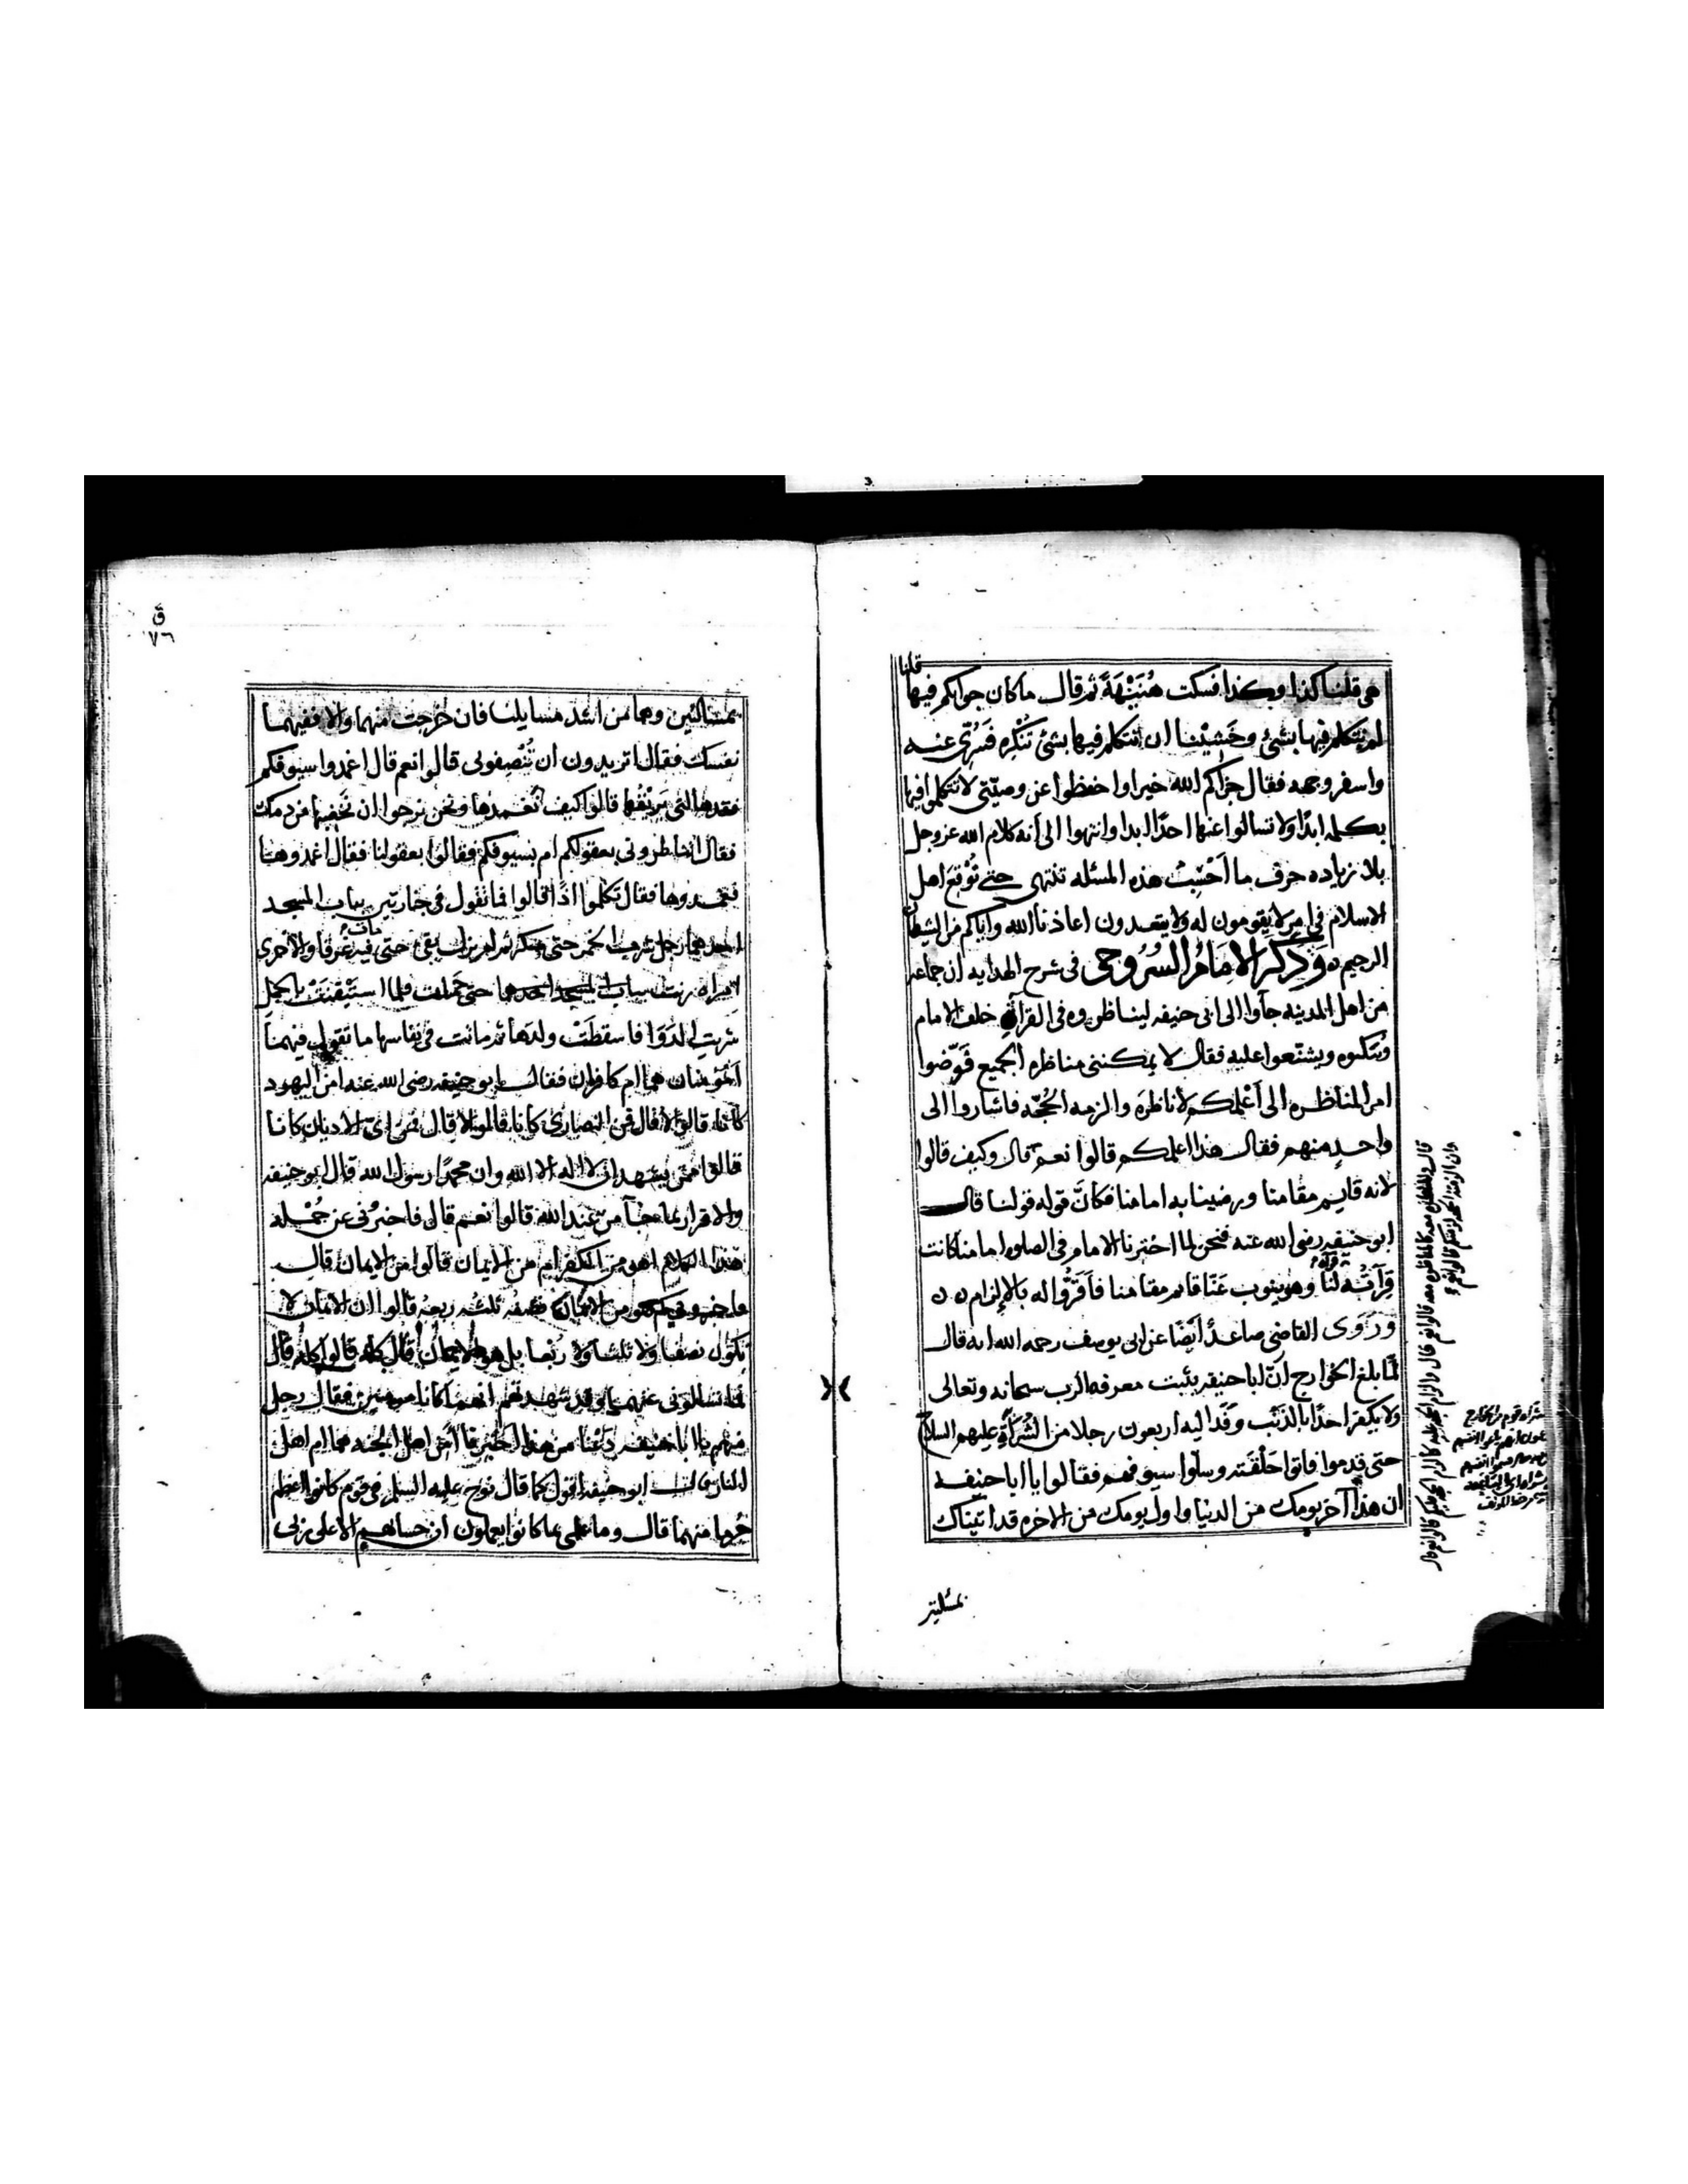 قلنا
هي قلنا كذا وكذا فسكت هُنَيْهَةً ثم قال ما كان جوابكم فيها
لم نتكلم فيها بشئ وخَشِيْنا ان نتكلم فيها بشئ تُنْكِره فَسُرِّيَ عنه
واسفر وجهه فقال جزاكم الله خيرا واحفظوا عن وصيّتي لا تتكلموا فيها
بكلمه ابدًا ولا تسالوا عنها احدًا ابدا وانتهوا الى انه كلام الله عز وجل
بلا زياده حرف ما اَحْسِبُ هذه المسئله تنتهى حتى تُوْقعَ اهل
الاسلام في امر لا يقومون له ولا يقعدون اعاذنا الله واياكم من الشيطان
الرجيم وَذَكَرَ الاِمَامُ السُّرُوجي فى شرح الهدايه ان جماعه
من اهل المدينه جآوا الى ابى حنيفه ليناظروه فى القرآة خلف الامام
ويبكتوه ويشنّعوا عليه فقال لا يمكننى مناظره الجميع فَوّضوا
امر المناظره الى اَعْلمكم لاُناظرَه والزمه الحُجّه فاشاروا الى
واحدٍ منهم فقال هذا اعلمكم قالوا نعم قال وكيف قالوا
لانه قايم مقامنا ورضينا به امامنا فكانَ قوله قولنا قال
ابو حنيفه رضى الله عنه فنحن لما اخترنا الامام فى الصلوه امامنا كانت
قِرآءتُه لنا وهو ينوب عَنّا قائم مقامنا فاَقَرُّوا له بالاِلزام
وَرَوَى القاضى صاعدٌ اَيْضًا عن ابى يوسف رحمه الله انه قال
لمّا بلغ الخوارج انّ ابا حنيفه يثبت معرفه الرب سبحانه وتعالى
ولا يكفر احدًا بالذَنْب وفَدَ اليه اربعون رجلا من الشُرَاةِ عليهم السلاح
حتى قدموا فاتوا حَلْقَته وسلّوا سيوفهم فقالوا يا ابا حنيفه
ان هذا آخر يومك من الدنيا واول يومك من الاخره قد اتيناك
بمسئلتين
ق
٧٦
بمسئالتين وهما من اشد مسايلنا فان خرجت منهما والا ففيهما
نفسك فقال اتريدون ان تُنْصِفونى قالوا نعم قال اغمدوا سيوفكم
قالوا كيف نُغمدها ونحن نرجوا ان نخضبها من دمك
فقال اتناظرونى بعقولكم ام بسيوفكم فقالوا بعقولنا فقال اغمدوها
فغمدوها فقال تكلموا اذًا قالوا فما تقول فى جنازتين بباب المسجد
احدهما رجل شرب الخمر حتى سكر ثم لم يزل يقئ حتى مات فيه غرقا والاخرى
امراه زنت بباب المسجد حتى حَملت فلما اسْتَيْقنَتْ بالحمل
شربت الدَوَا فاسقطَتْ ولدها ثم ماتت فى نفاسها ما تقول فيهما
اَمُؤمنان هما ام كافران فقال ابو حنيفه رضى الله عنه امن اليهود
كانا قالوا لا قال فمن النصارى كانا قالوا لا قال فمن اىّ الاديان كانا
قالوا ممن يشهد ان لا اله الا الله وان محمدًا رسول الله قال ابو حنيفه
والاقرار بما جآ من عند الله قالوا نعم قال فاخبرُونى عن جُمْله
هذا الكلام اهو من الكفر ام من الايمان قالوا من الايمان قال
فاخبرونى كم هو من الايمان نصفه ثلثه ربعه قالوا ان الايمان لا
يكون نصفا ولا ثلثا ولا ربُعا بل هو الايمان قال كله قالوا كله قال
فما تسالونى عنهما وقد شهدتم انهما كانا مومنين فقال رجل
منهم يا ابا حنيفه دَعْنا من هذا اخبرنا اَمن اهل الجنه هما ام اهل
النار قال ابو حنيفه اقول كما قال نوح عليه السلم فى قوم كانوا اعظم
جُرما منهما قال وما علمى بما كانوا يعملون ان حسابهم الا على ربى